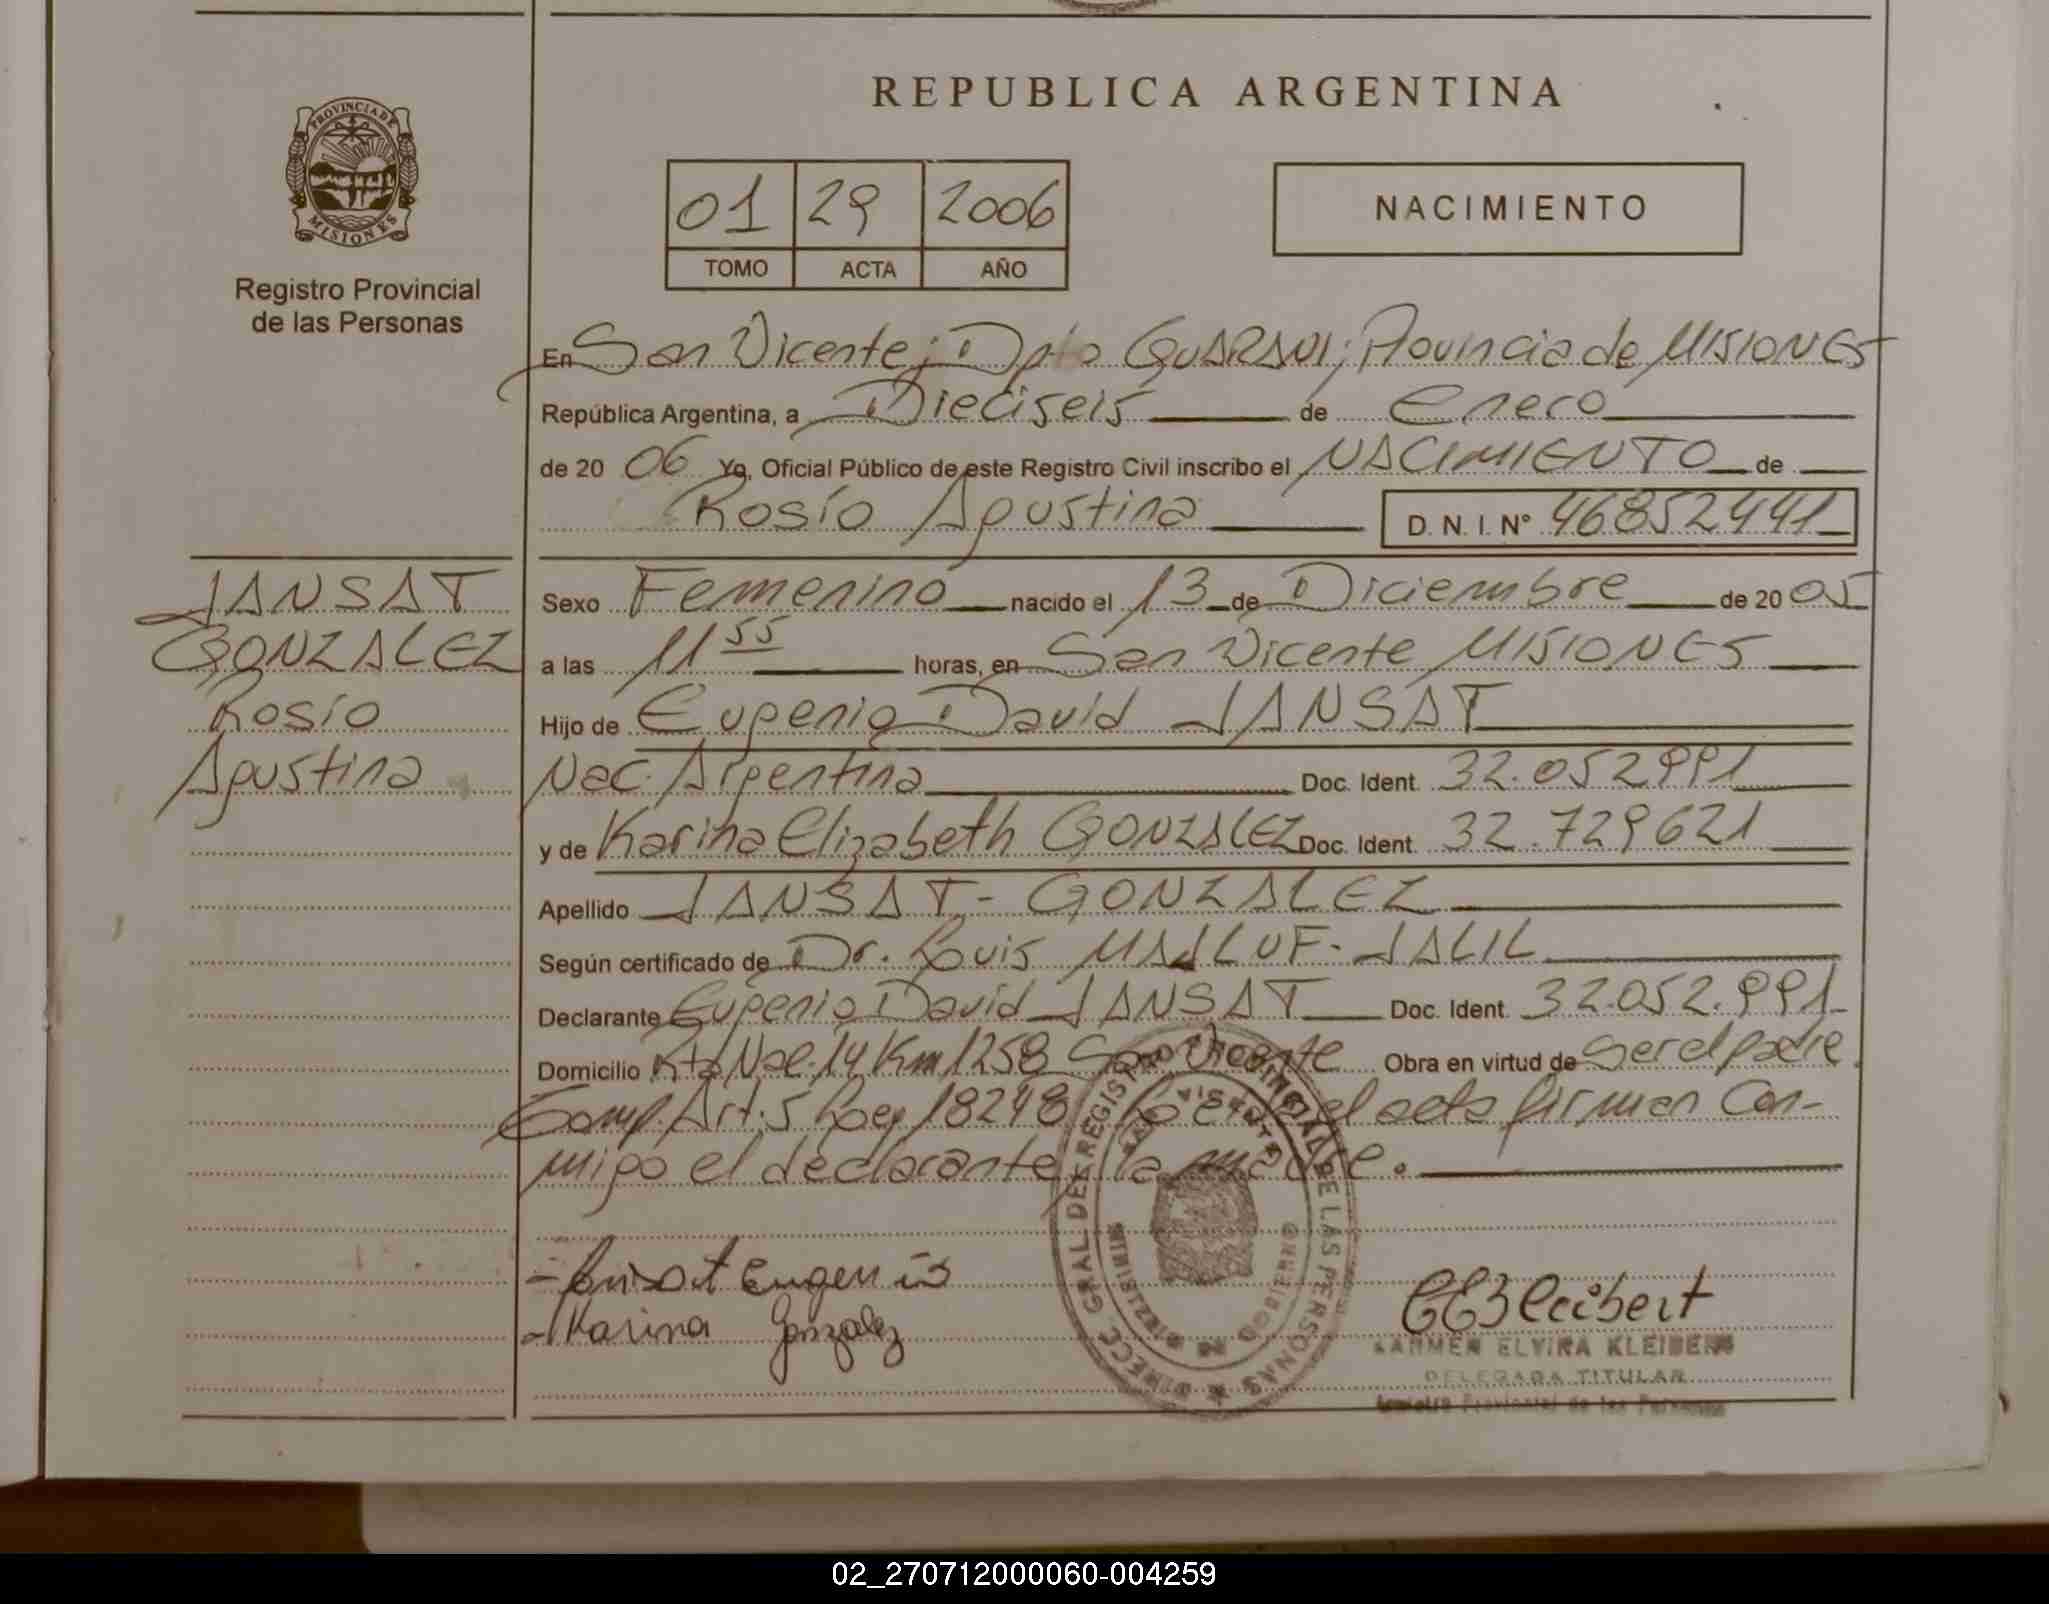 REPUBLICA ARGENTINA
PROVINCIA DE
MISIONES
Registro Provincial
de las Personas
01 29 2006
TOMO ACTA AÑO
NACIMIENTO
En San Vicente; Dpto GUARANI; Provincia de MISIONES
República Argentina, a Dieciseis de Enero
de 20 06 Yo, Oficial Público de este Registro Civil inscribo el NACIMIENTO de
Rosío Agustina D. N. I. N° 46852441
JANSAT
GONZALEZ
Rosío
Agustina
Sexo Femenino nacido el 13 de Diciembre de 20 05
a las 11 55 horas, en San Vicente MISIONES
Hijo de Eugenio David JANSAT
Nac. Argentina Doc. Ident. 32.052991
y de Karina Elizabeth GONZALEZ Doc. Ident. 32.729621
Apellido JANSAT - GONZALEZ
Según certificado de Dr. Luis MAJLUF - JALIL
Declarante Eugenio David JANSAT Doc. Ident. 32.052.991
Domicilio Rta Nac. 14 Km 1258 San Vicente Obra en virtud de ser el padre.
Comp. Art. 5 Ley 18248 el acta firman con-
migo el declarante y la madre.
Jansat Eugenio
Karina Gonzalez
DIREC. GRAL DEL REGISTRO PROVINCIAL DE LAS PERSONAS
SAN VICENTE
MINISTERIO DE GOBIERNO
KARMEN ELVIRA KLEIBERT
DELEGADA TITULAR
Registro Provincial de las Personas
02_270712000060-004259